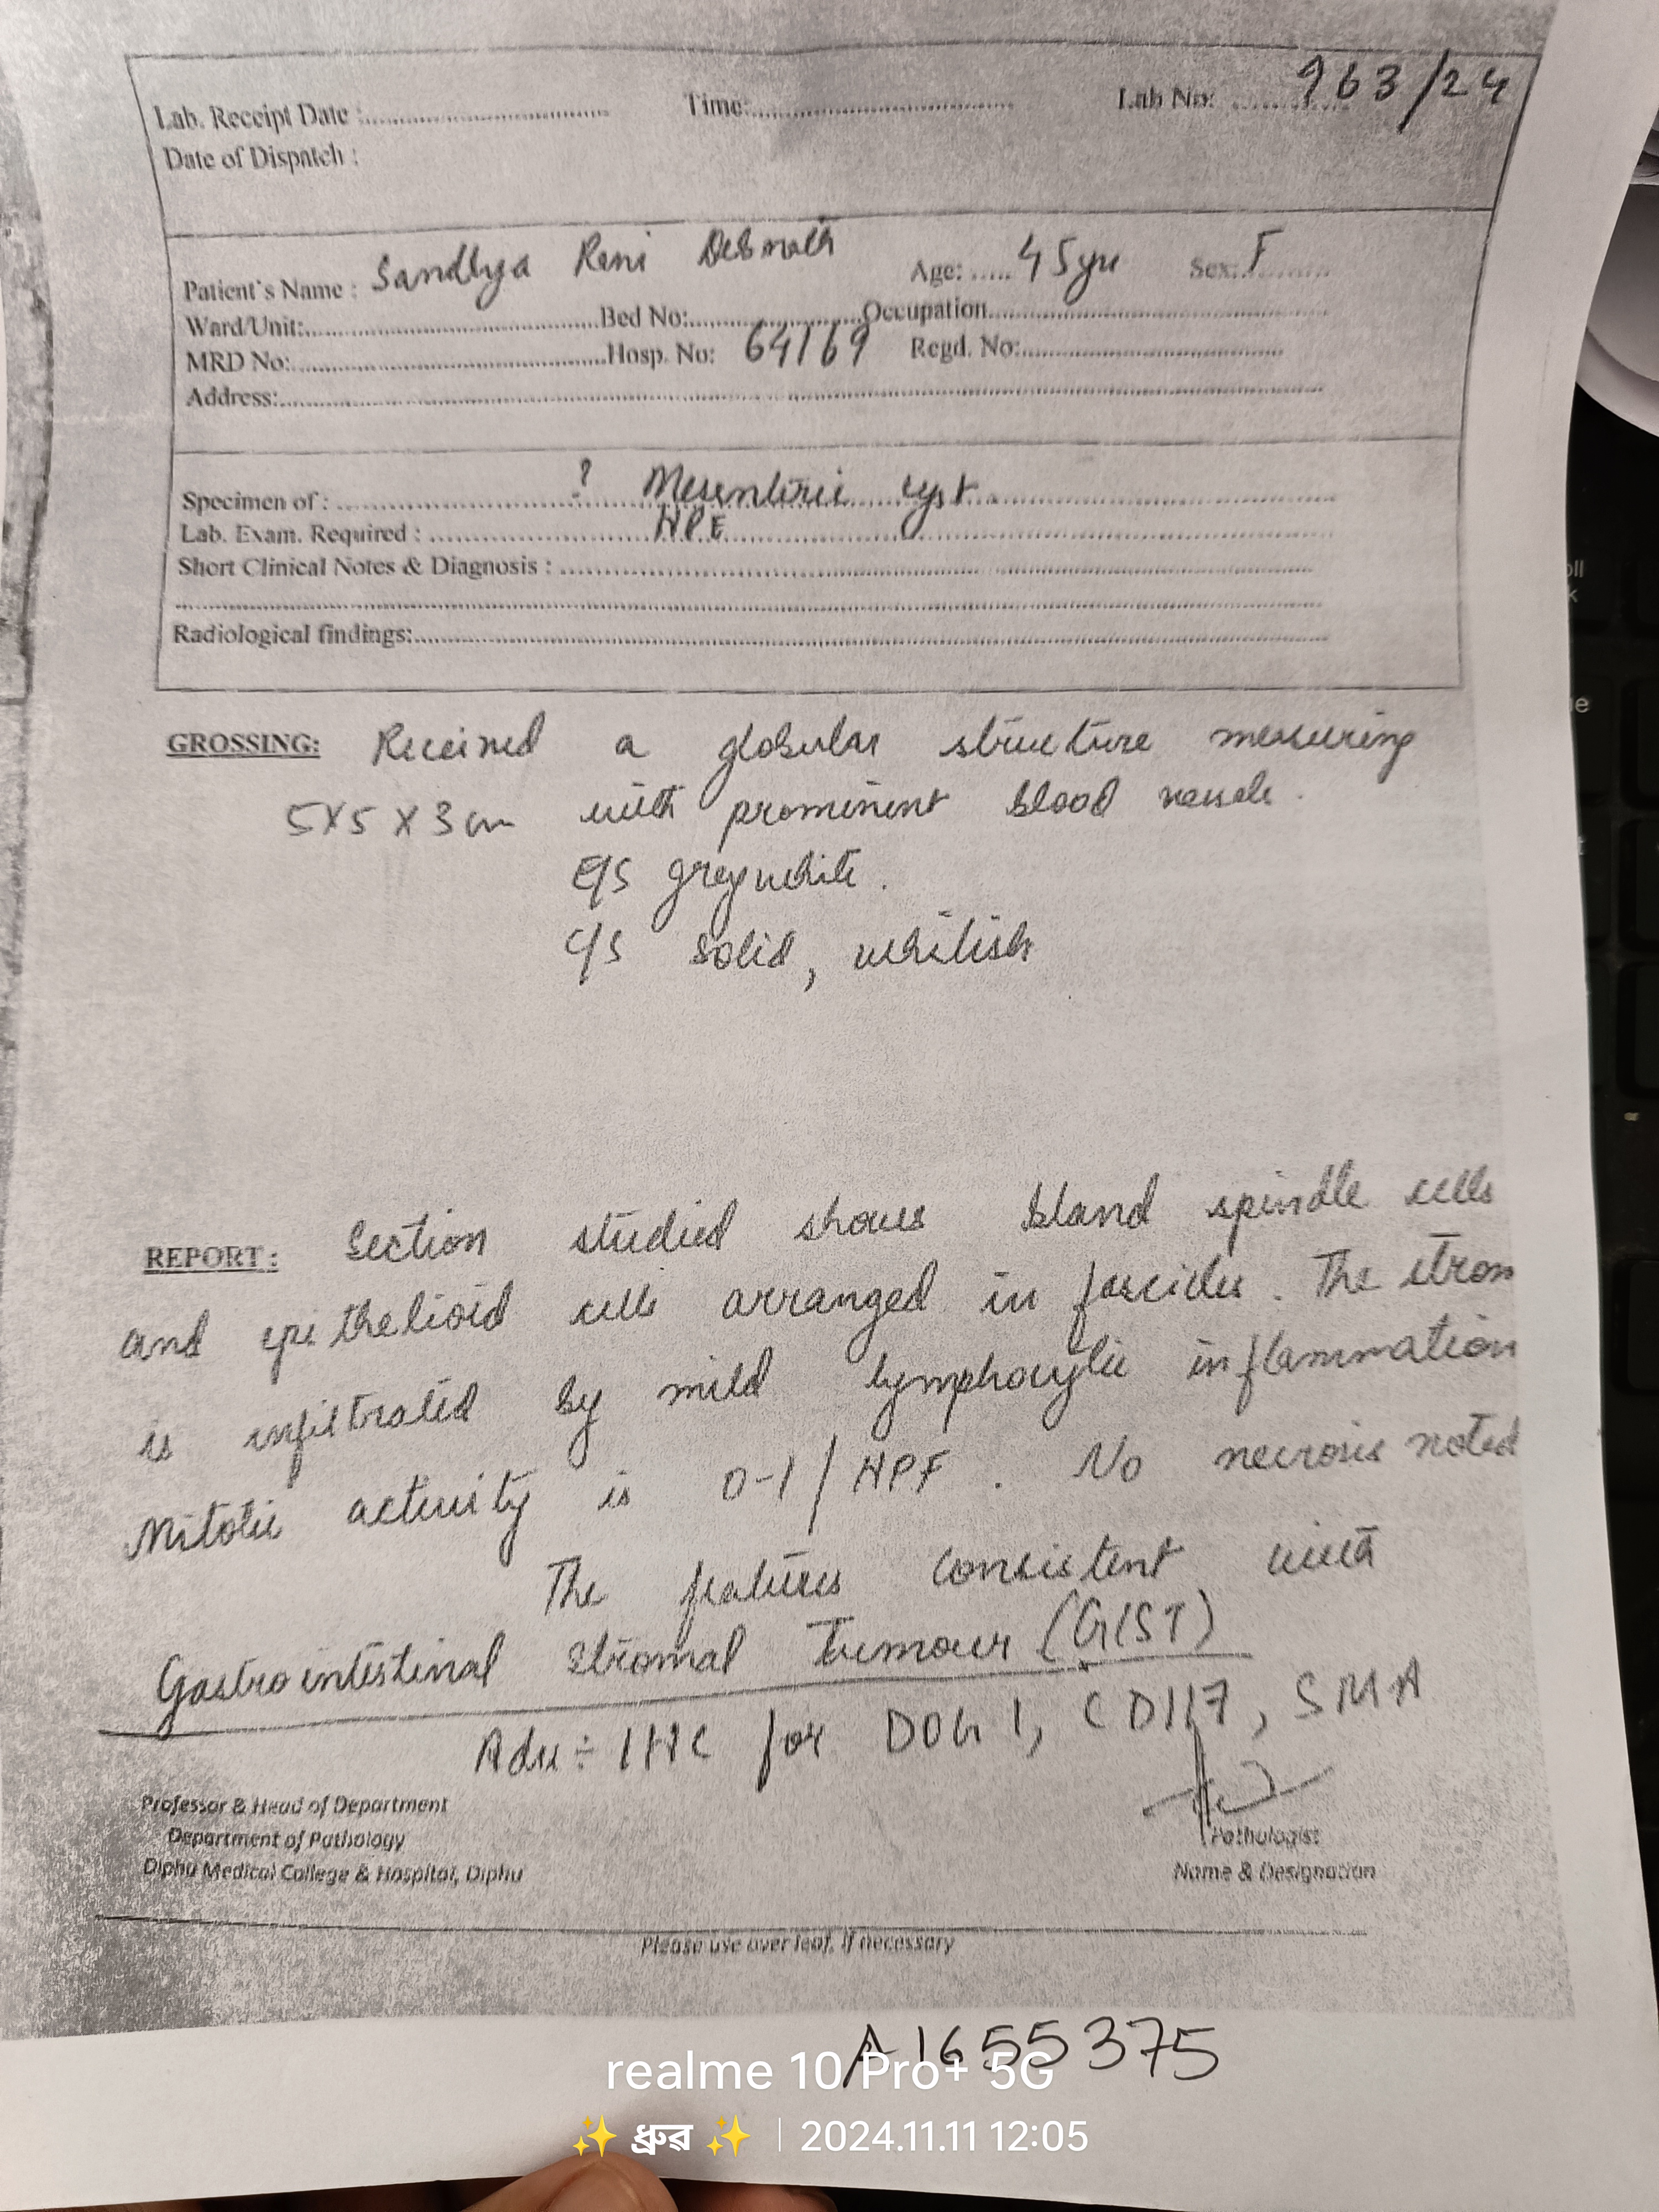 Lab. Receipt Date : Time: Lab No: 963/24
Date of Dispatch :
Patient's Name : Sandhya Rani Debnath Age: 45yr Sex: F
Ward/Unit: Bed No: Occupation
MRD No: Hosp. No: 64169 Regd. No:
Address:
Specimen of : ? Mesenteric cyst
Lab. Exam. Required : HPE
Short Clinical Notes & Diagnosis :
Radiological findings:
GROSSING: Received a globular structure measuring
5X5 X 3 cm with prominent blood vessels.
E/S greywhite.
C/S solid, whitish
REPORT: Section studied shows bland spindle cells
and epithelioid cells arranged in fascicles. The strom
is infiltrated by mild lymphocytic inflammation
Mitotic activity is 0-1/HPF. No necrosis noted
The features consistent with
Gastrointestinal Stromal Tumour (GIST)
Adv÷ IHC for DOG 1, CD117, SMA
Professor & Head of Department
Department of Pathology
Diphu Medical College & Hospital, Diphu
Pathologist
Name & Designation
Please use over leaf, if necessary
A1655375
realme 10 Pro+ 5G
✨ ধ্ৰুৱ ✨ | 2024.11.11 12:05